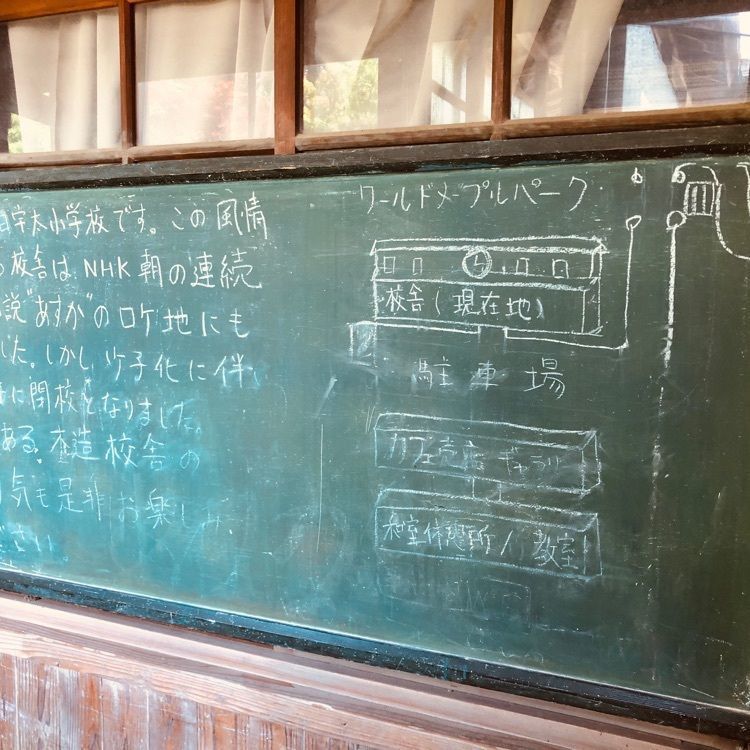 宇太小学校です。この風情
校舎は NHK 朝の連続
説"あすか"のロケ地にも
した。しかし少子化に伴い
に閉校となりました。
ある。木造校舎の
気も是非お楽しみ
ださい
ワールドメープルパーク
校舎(現在地)
駐車場
カフェ売店 ギャラリー
和室休憩所/教室